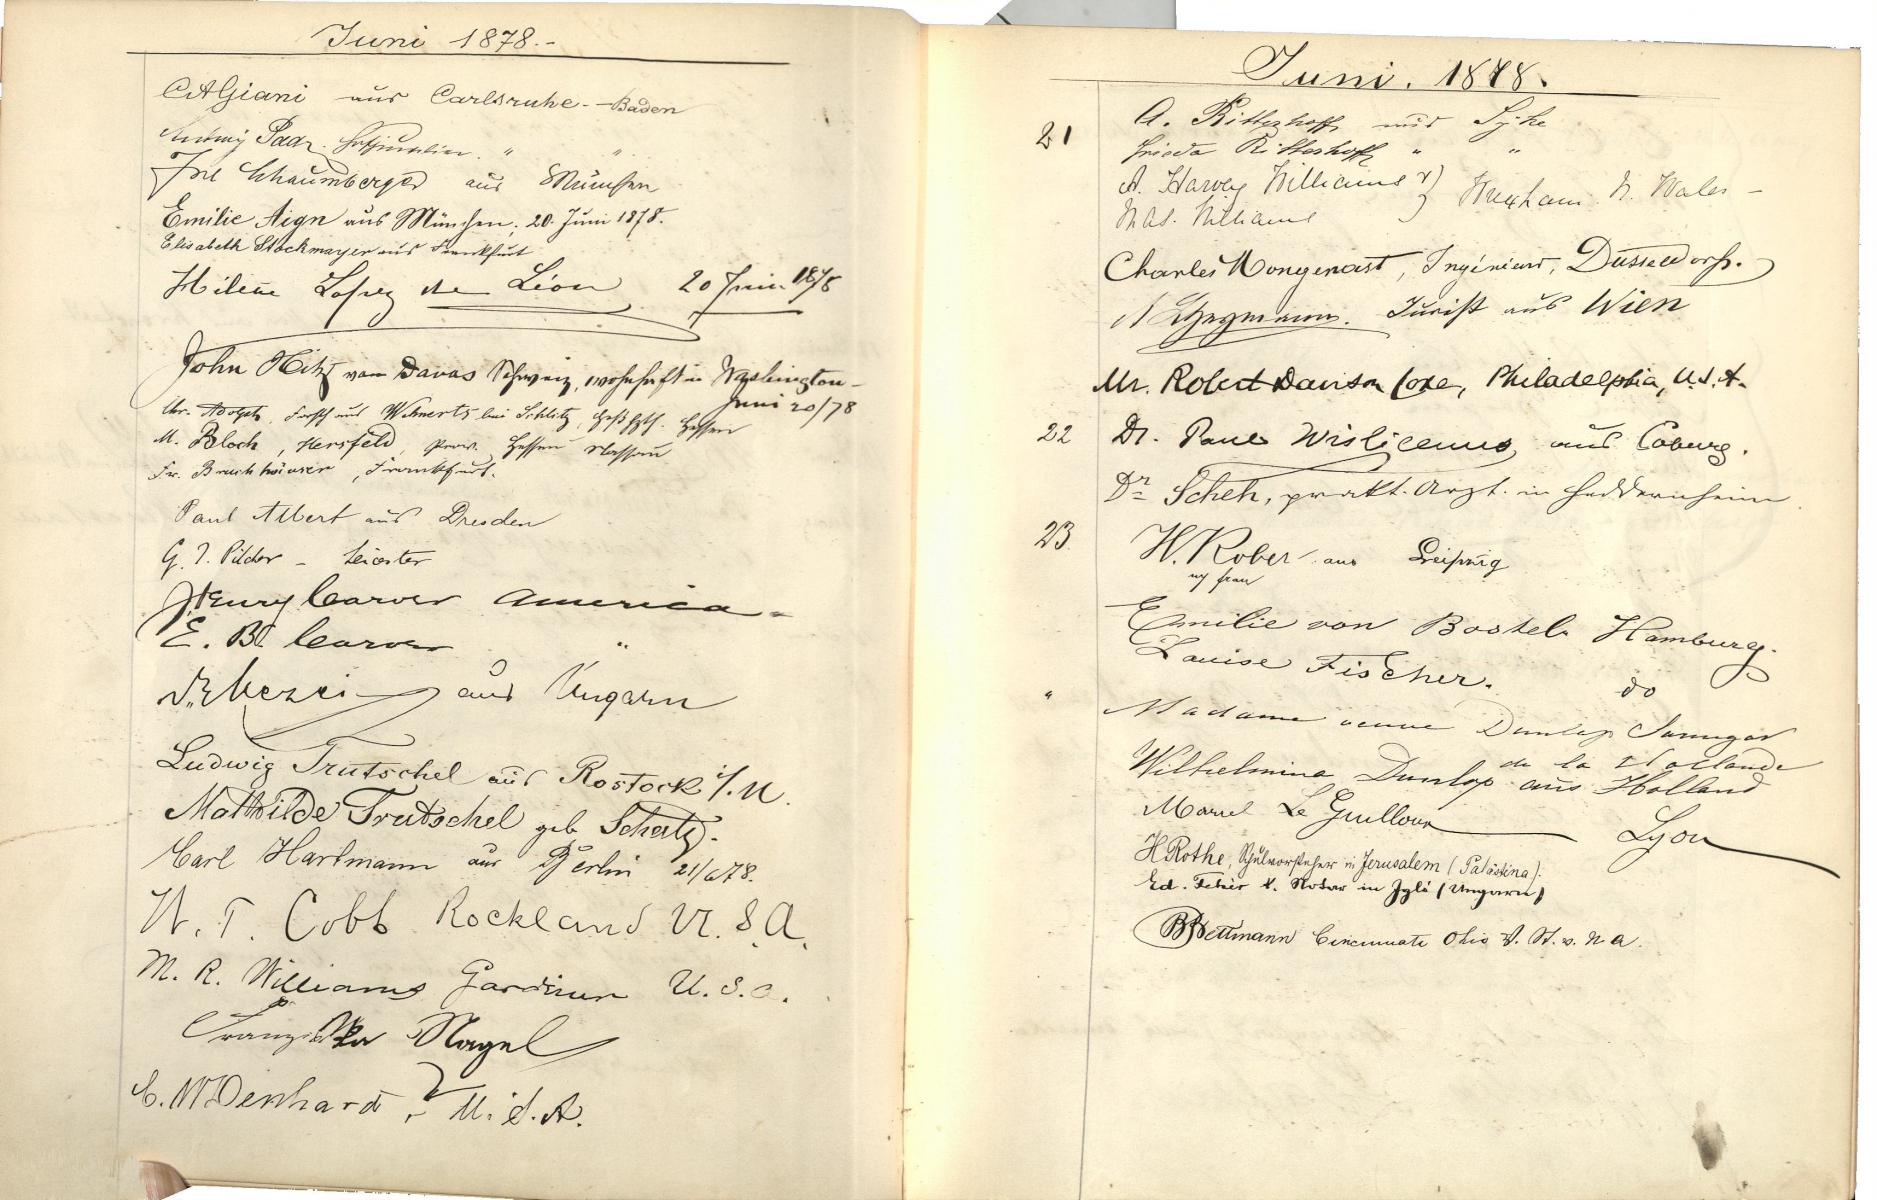 Juni 1878.-
CAGiani aus Carlsruhe - Baden
Paar. Hofjuwelier. " "
Schaumberger aus München
Emilie Aign aus München, 20 Juni 1878.
Elisabeth Stockmayer aus Frankfurt
Hilene Lopez de Léon 20 Juin 1878
John Hitz von Davos Schweiz, wohnhaft in Washington -
Juni 20/78
Chr. Adolph, aus Wehnerts bei Schlitz, Hessen
M. Bloch, Hersfeld, Prov. Hessen Nassau
Fr. Bruchhäuser, Frankfurt.
Paul Albert aus Dresden
G. T. Pilcher - Leicester
Henry Carver America -
E. B. Carver "
Dr. Mezei aus Ungarn
Ludwig Trutschel aus Rostock i/. M.
Mathilde Trutschel geb Schertz.
Carl Hartmann aus Berlin 21/6 78.
W. T. Cobb Rockland U. S. A.
M. R. Williams Gardiner U. S. a.
Franziska Nagel
C. W. Denhard, U. S. A.
Juni. 1878.
21 A. Ritterhoff aus Syke
Frieda Ritterhoff " "
A. Harvey Williams } Wrexham. N. Wales -
Mrs. Williams
Charles Mongenast, Ingénieur, Düsseldorf.
Jurist aus Wien
Mr. Robert Davison Coxe, Philadelphia, U. S. A.
22 Dr. Paul Wislicenus, aus Coburg.
Dr Scheh, prakt. Arzt. in Heddernheim
23 H. Rober aus Leipzig
u frau
Emilie von Bostel. Hamburg.
Louise Fischer. do
" Madame veuve Dunlop
de la Hollande
Wilhelmina Dunlop aus Holland
Marcel Le Guillour Lyon
H Rothe, Schulvorsteher in Jerusalem (Palästina).
Ed. Fehér k. Notar in Igló (Ungarn)
B Bettmann Cincinnati Ohio V. St. v. N a.